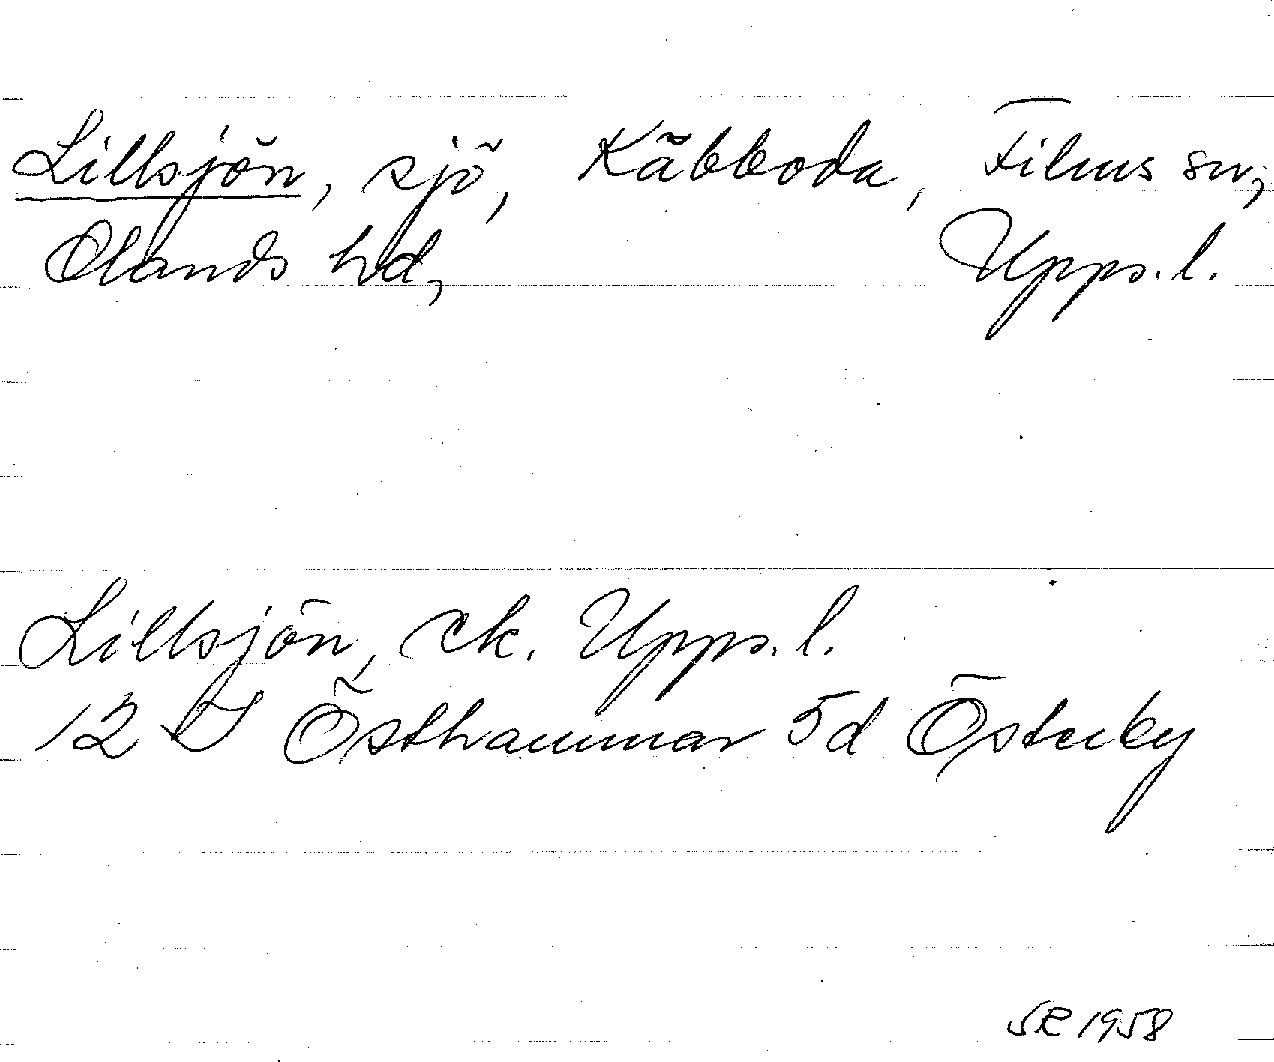 Lillsjön, sjö, Käbboda, Films sn,
Olands hd, Upps. l.
Lillsjön, ek. Upps. l.
12 I Östhammar 5d Österby
SE 1958